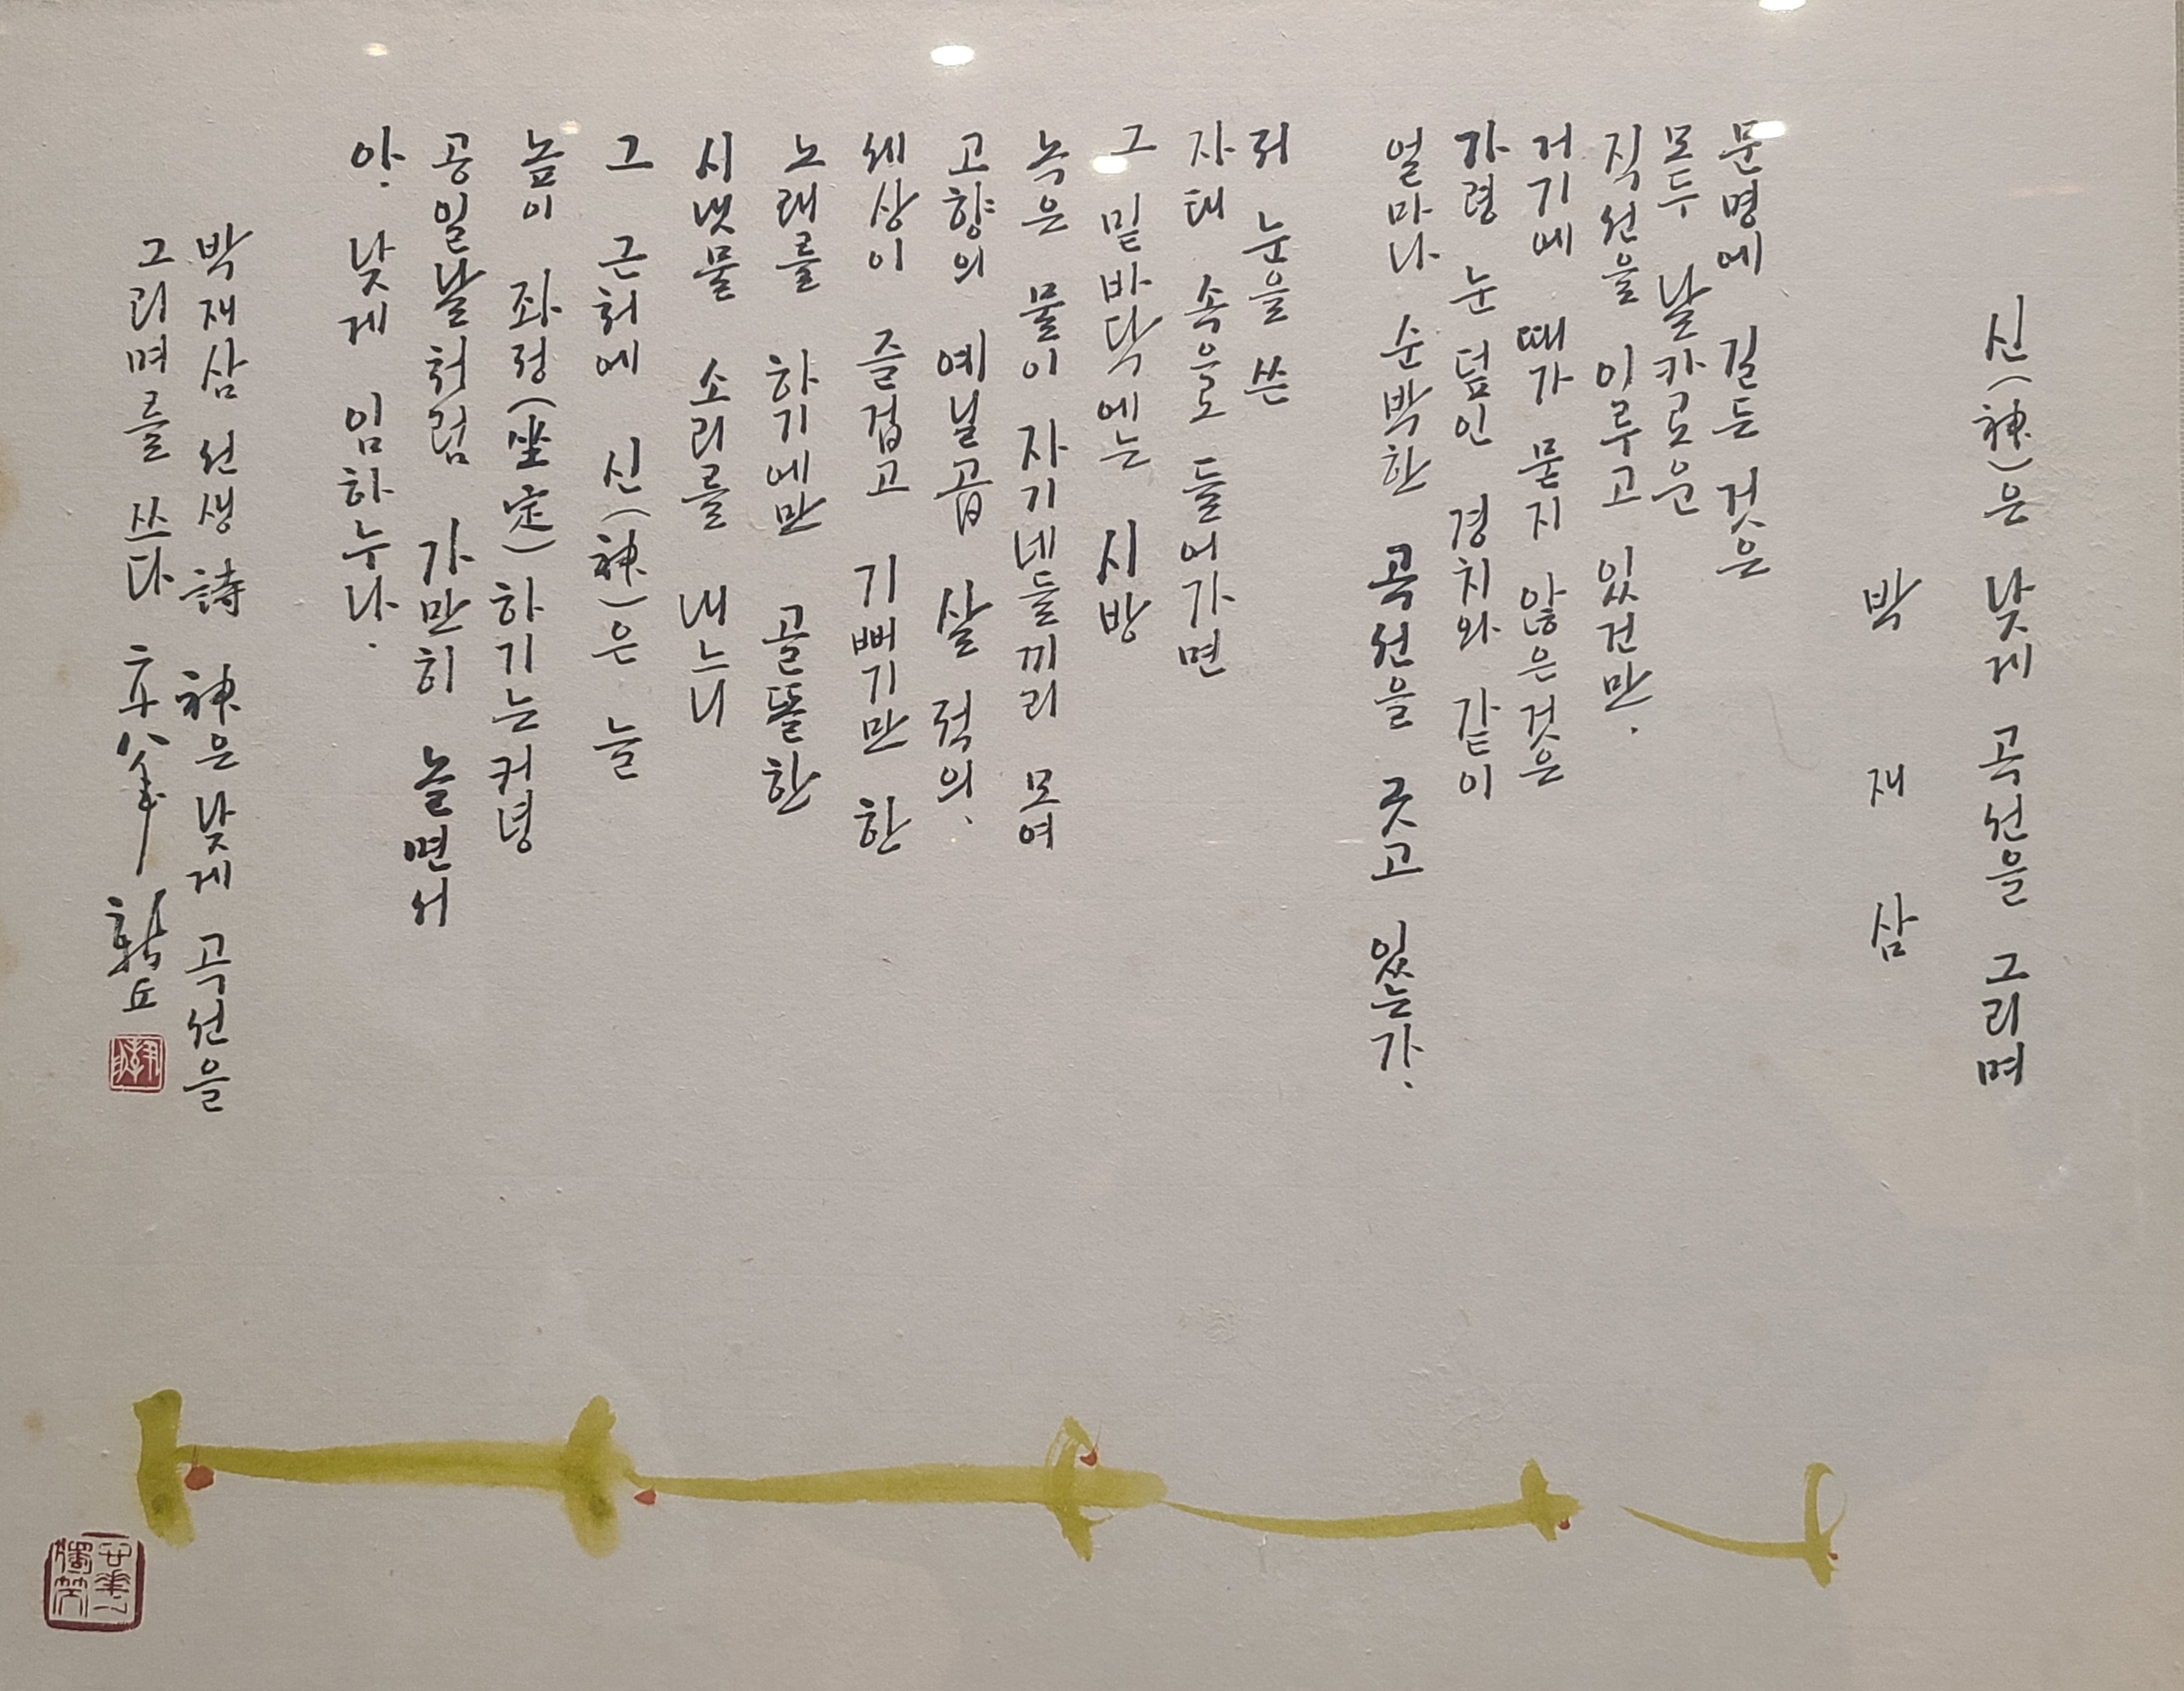 신(神)은 낮게 곡선을 그리며
박 재 삼
문명에 길든 것은
모두 날카로운
직선을 이루고 있건만.
거기에 때가 묻지 않은것은
가령 눈 덮인 경치와 같이
얼마나 순박한 곡선을 긋고 있는가.
저 눈을 쓴
자태 속을도 들어가면
그 밑바닥에는 시방
녹은 물이 자기네들끼리 모여
고향의 예닐곱 살 적의.
세상이 즐겁고 기뻐기만 한
노래를 하기에만 골똘한
시냇물 소리를 내느니
그 근처에 신(神)은 늘
높이 좌정(坐定)하기는커녕
공일날처럼 가만히 놀면서
아. 낮게 임하누나.
박재삼 선생 詩 神은 낮게 곡선을
그리며를 쓰다